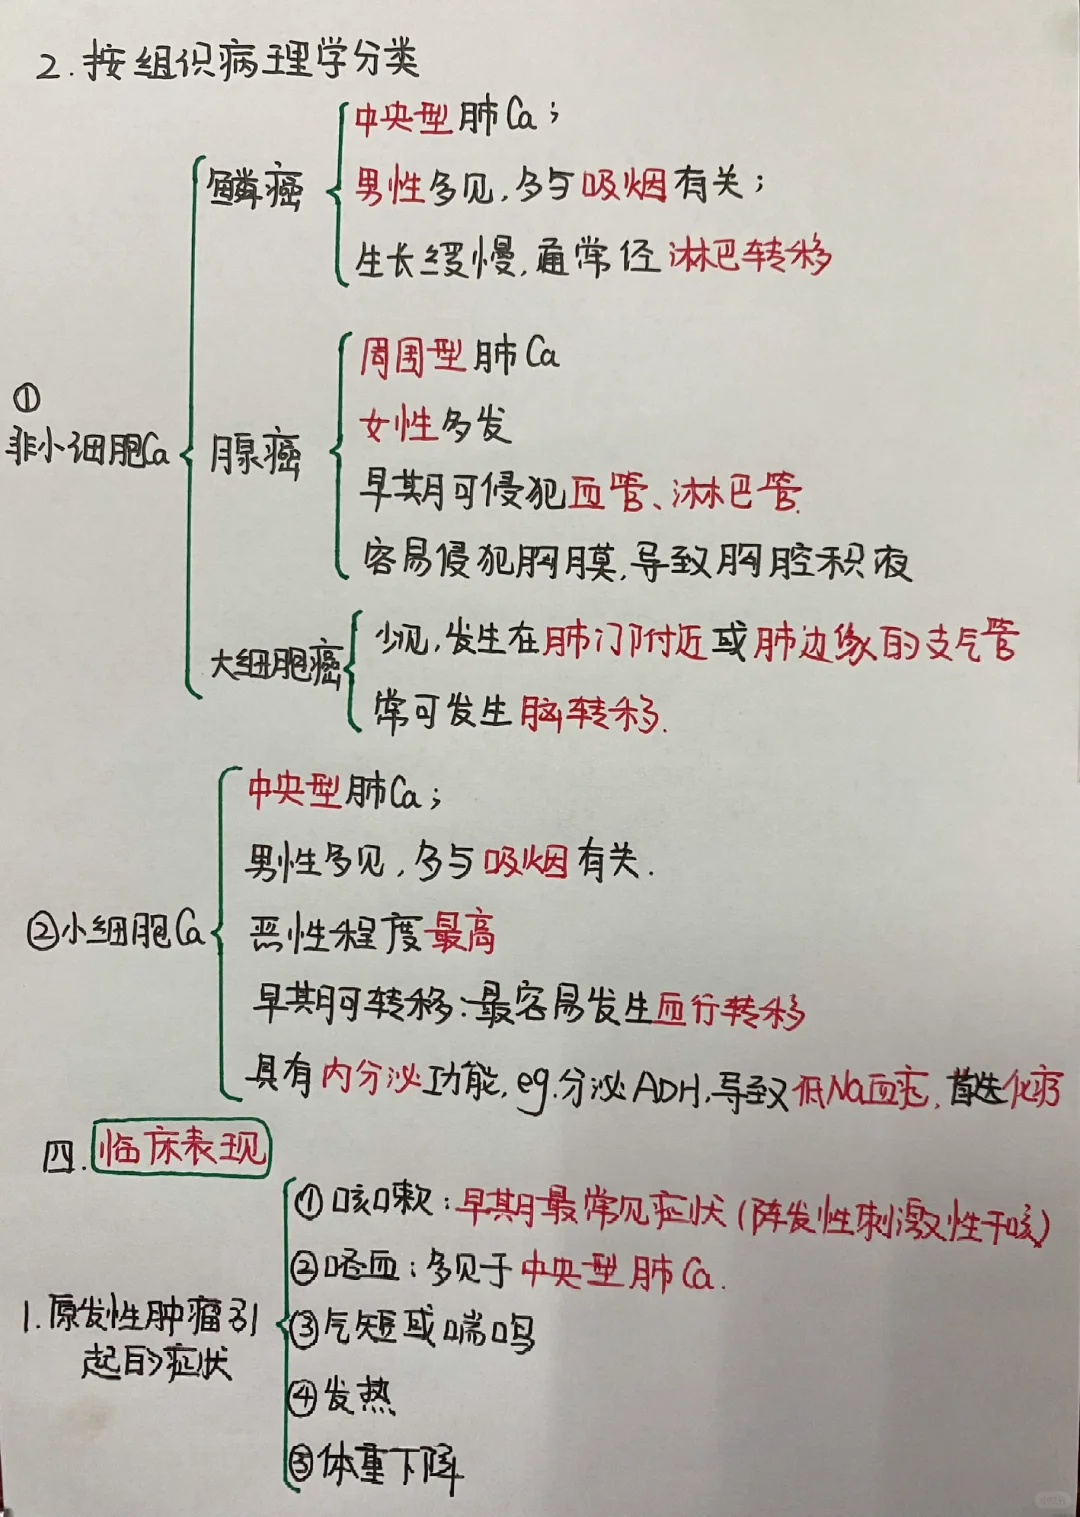 2.按组织病理学分类
中央型肺Ca;
鳞癌
男性多见,多与吸烟有关;
生长缓慢,通常径淋巴转移
周围型肺Ca
①
女性多发
非小细胞Ca
腺癌
早期可侵犯血管、淋巴管.
容易侵犯胸膜,导致胸腔积液
少见,发生在肺门附近或肺边缘的支气管
大细胞癌
常可发生脑转移.
中央型肺Ca;
男性多见,多与吸烟有关.
②小细胞Ca
恶性程度最高
早期可转移:最容易发生血行转移
具有内分泌功能,eg.分泌ADH,导致低Na血症,首选化疗
四.临床表现
①咳嗽:早期最常见症状(阵发性刺激性干咳)
②咯血:多见于中央型肺Ca.
1.原发性肿瘤引
起的症状
③气短或喘鸣
④发热
⑤体重下降